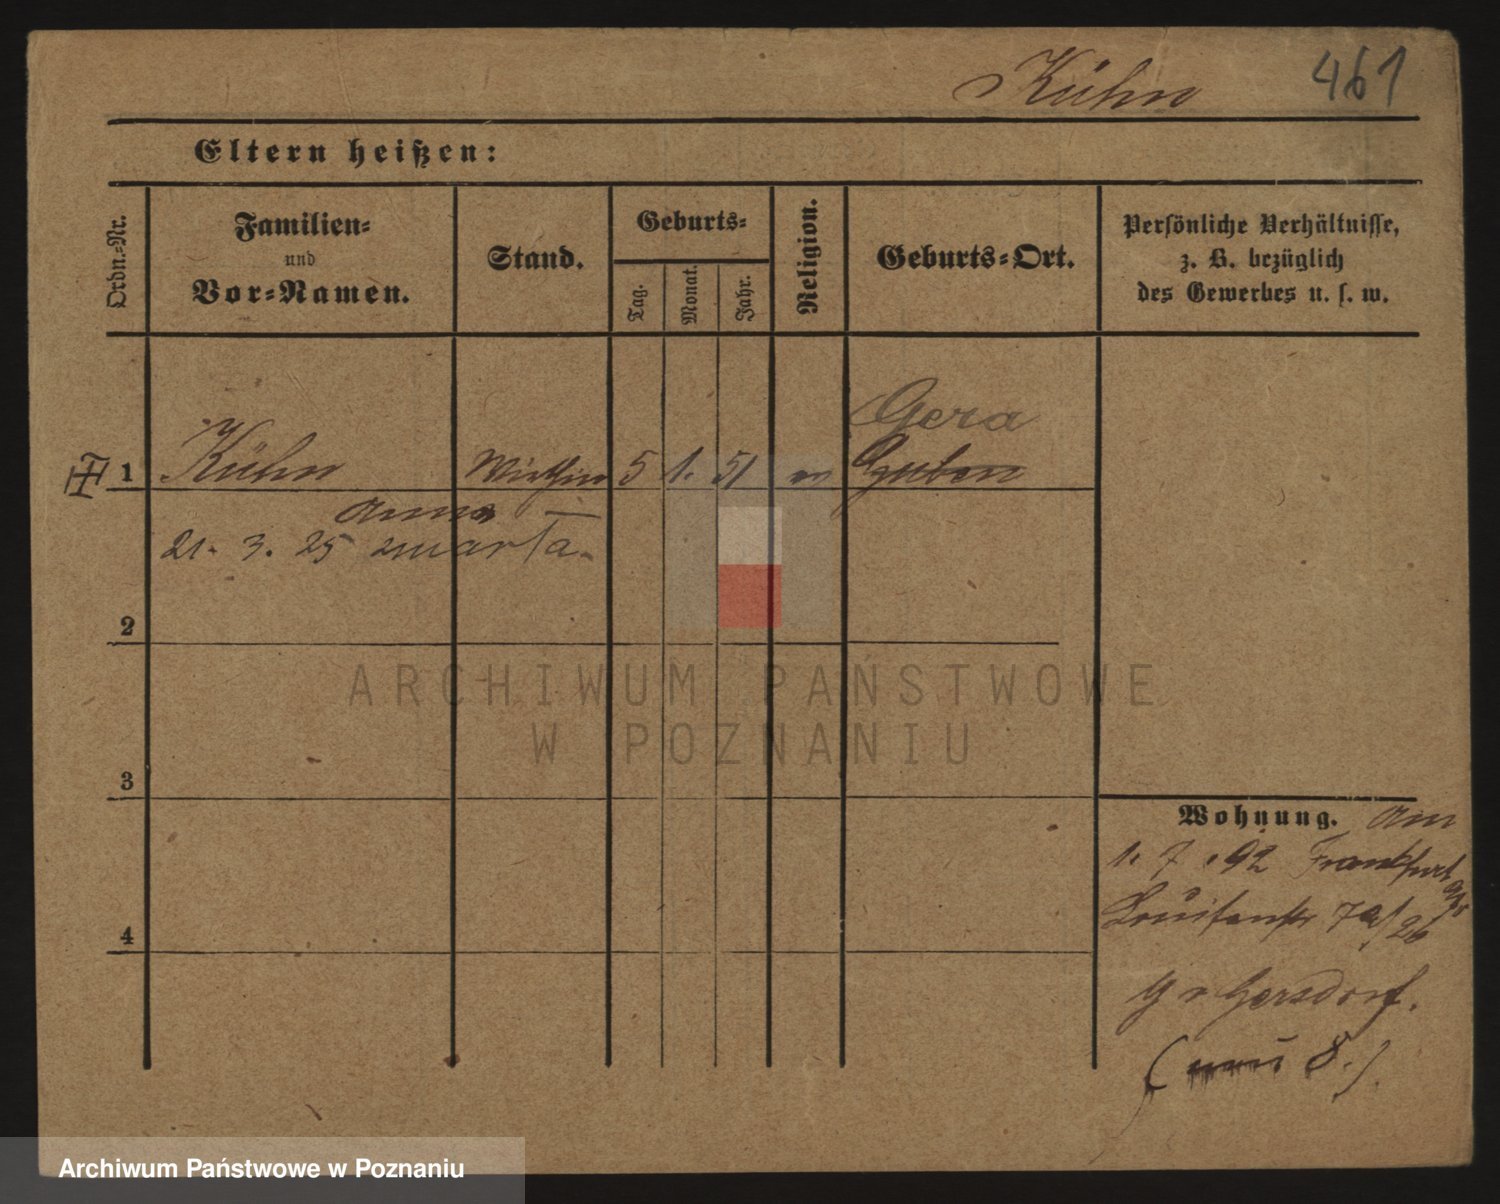 Kühn 461
Eltern heißen:
Ordn.-Nr.
Familien-
und
Vor-Namen.
Stand.
Geburts-
Tag.
Monat.
Jahr.
Religion.
Geburts-Ort.
Persönliche Verhältnisse,
z. B. bezüglich
des Gewerbes u. s. w.
Gera
1 Kühn Wirthin 5 1. 51 ev Guben
Anna
21. 3. 25 zmarła.
2
3
4
Wohnung. Am
1. 7. 92 Frankfurt a/O
Louisenstr 7a/26
b v Gersdorf.
(neu 8.)
ARCHIWUM PAŃSTWOWE
W POZNANIU
Archiwum Państwowe w Poznaniu